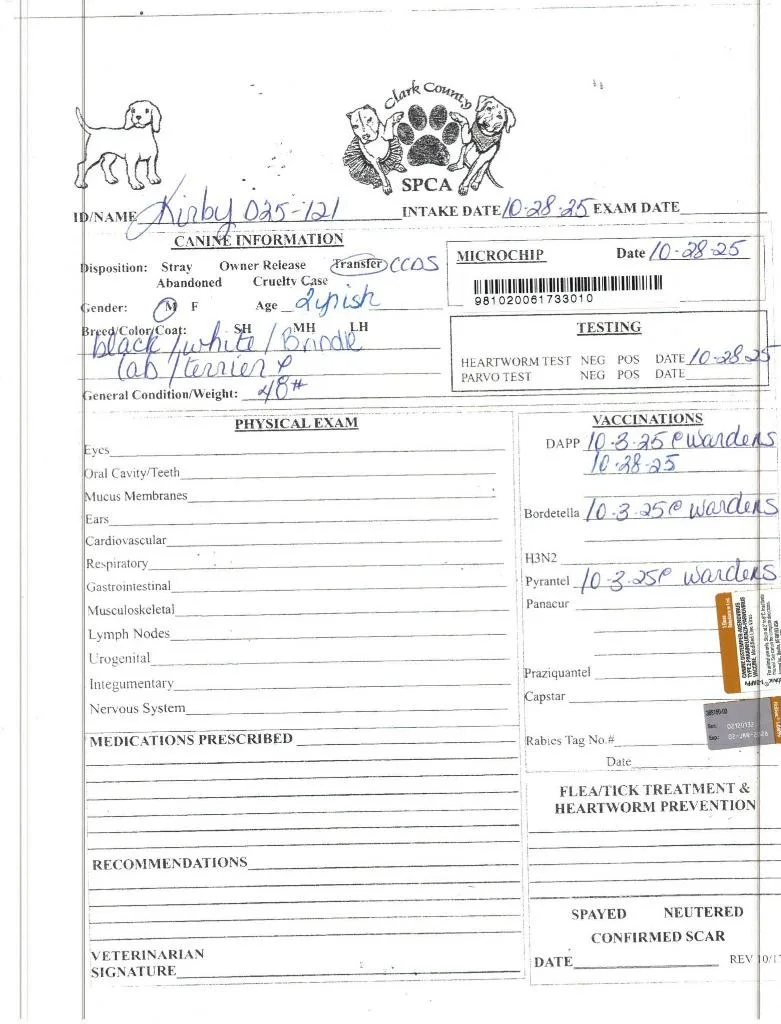 Clark County
SPCA
ID/NAME Kirby 025-121 INTAKE DATE 10-28-25 EXAM DATE
CANINE INFORMATION
Disposition: Stray Owner Release Transfer CCDS
Abandoned Cruelty Case
Gender: M F Age 2yrish
Breed/Color/Coat: SH MH LH
black/white/Brindle
lab/terrier
General Condition/Weight: 48#
MICROCHIP Date 10-28-25
981020061733010
TESTING
HEARTWORM TEST NEG POS DATE 10-28-25
PARVO TEST NEG POS DATE
PHYSICAL EXAM
Eyes
Oral Cavity/Teeth
Mucus Membranes
Ears
Cardiovascular
Respiratory
Gastrointestinal
Musculoskeletal
Lymph Nodes
Urogenital
Integumentary
Nervous System
MEDICATIONS PRESCRIBED
RECOMMENDATIONS
VETERINARIAN
SIGNATURE
VACCINATIONS
DAPP 10-3-25 @ wardens
10-28-25
Bordetella 10-3-25 @ wardens
H3N2
Pyrantel 10-3-25 @ wardens
Panacur
CANINE DISTEMPER-ADENOVIRUS
TYPE 2-PARAINFLUENZA-PARVOVIRUS
VACCINE
Praziquantel
Capstar
Ser: 02120132
Exp: 02-JAN-2026
Rabies Tag No.#
Date
FLEA/TICK TREATMENT &
HEARTWORM PREVENTION
SPAYED NEUTERED
CONFIRMED SCAR
DATE REV 10/17